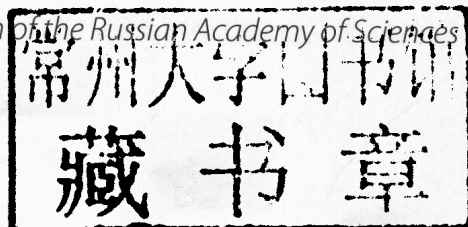 of the Russian Academy of Sciences
常州大学图书馆
藏书章